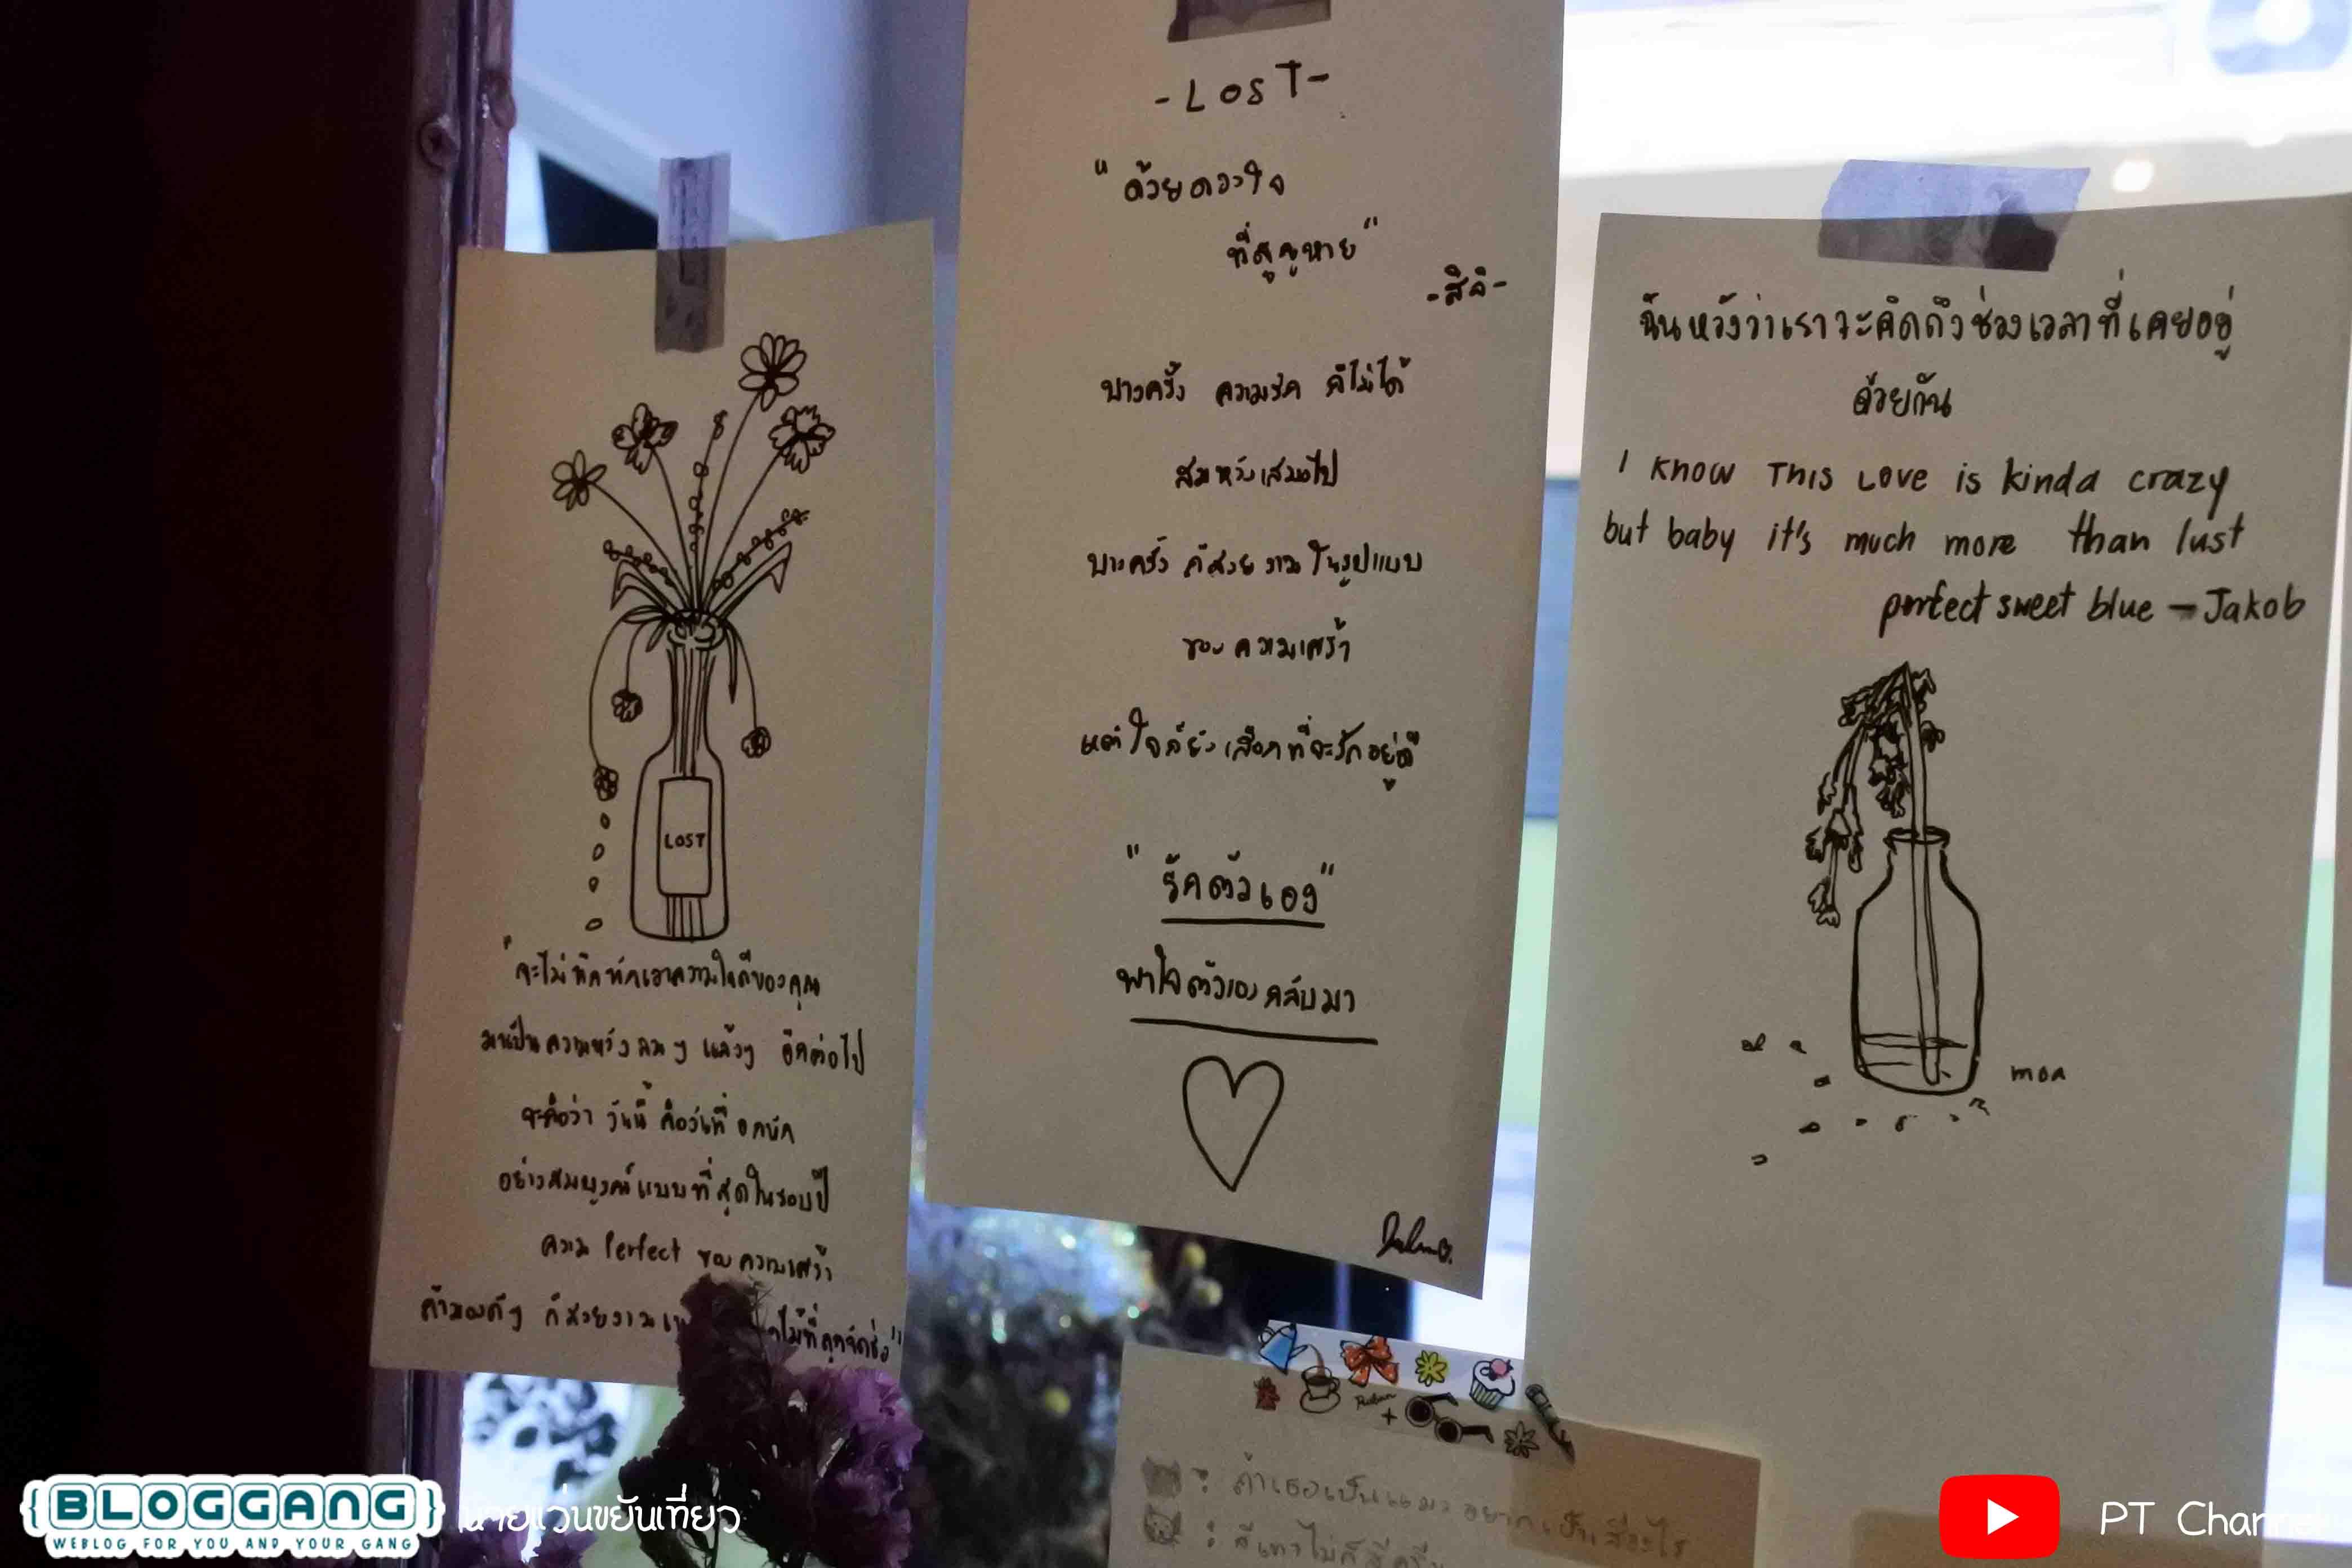 LOST
"จะไม่ทึกทักเอาความใจดีของคุณ
มาเป็นความหวังลมๆ แล้งๆ อีกต่อไป
จะถือว่า วันนี้ คือวันที่ อกหัก
อย่างสมบูรณ์แบบที่สุดในรอบปี
ความ Perfect ของความเศร้า
ถ้ามองดีๆ ก็สวยงาม
ไม้ที่ถูกจัดช่อ"
-LOST-
"ด้วยดวงใจ
ที่สูญหาย"
-สิริ-
บางครั้ง ความรัก ก็ไม่ได้
สมหวังเสมอไป
บางครั้ง ก็สวยงามในรูปแบบ
ของความเศร้า
แต่ใจก็ยังเลือกที่จะรักอยู่ดี
"รักตัวเอง"
พาใจตัวเองกลับมา
ฉันหวังว่าเราจะคิดถึงช่วงเวลาที่เคยอยู่
ด้วยกัน
I know This Love is kinda crazy
but baby it's much more than lust
perfect sweet blue - Jakob
mon
: ถ้าเธอเป็นแมว อยากเป็นสีอะไร
{BLOGGANG}
WEBLOG FOR YOU AND YOUR GANG
นายแว่นขยันเที่ยว
PT Channel